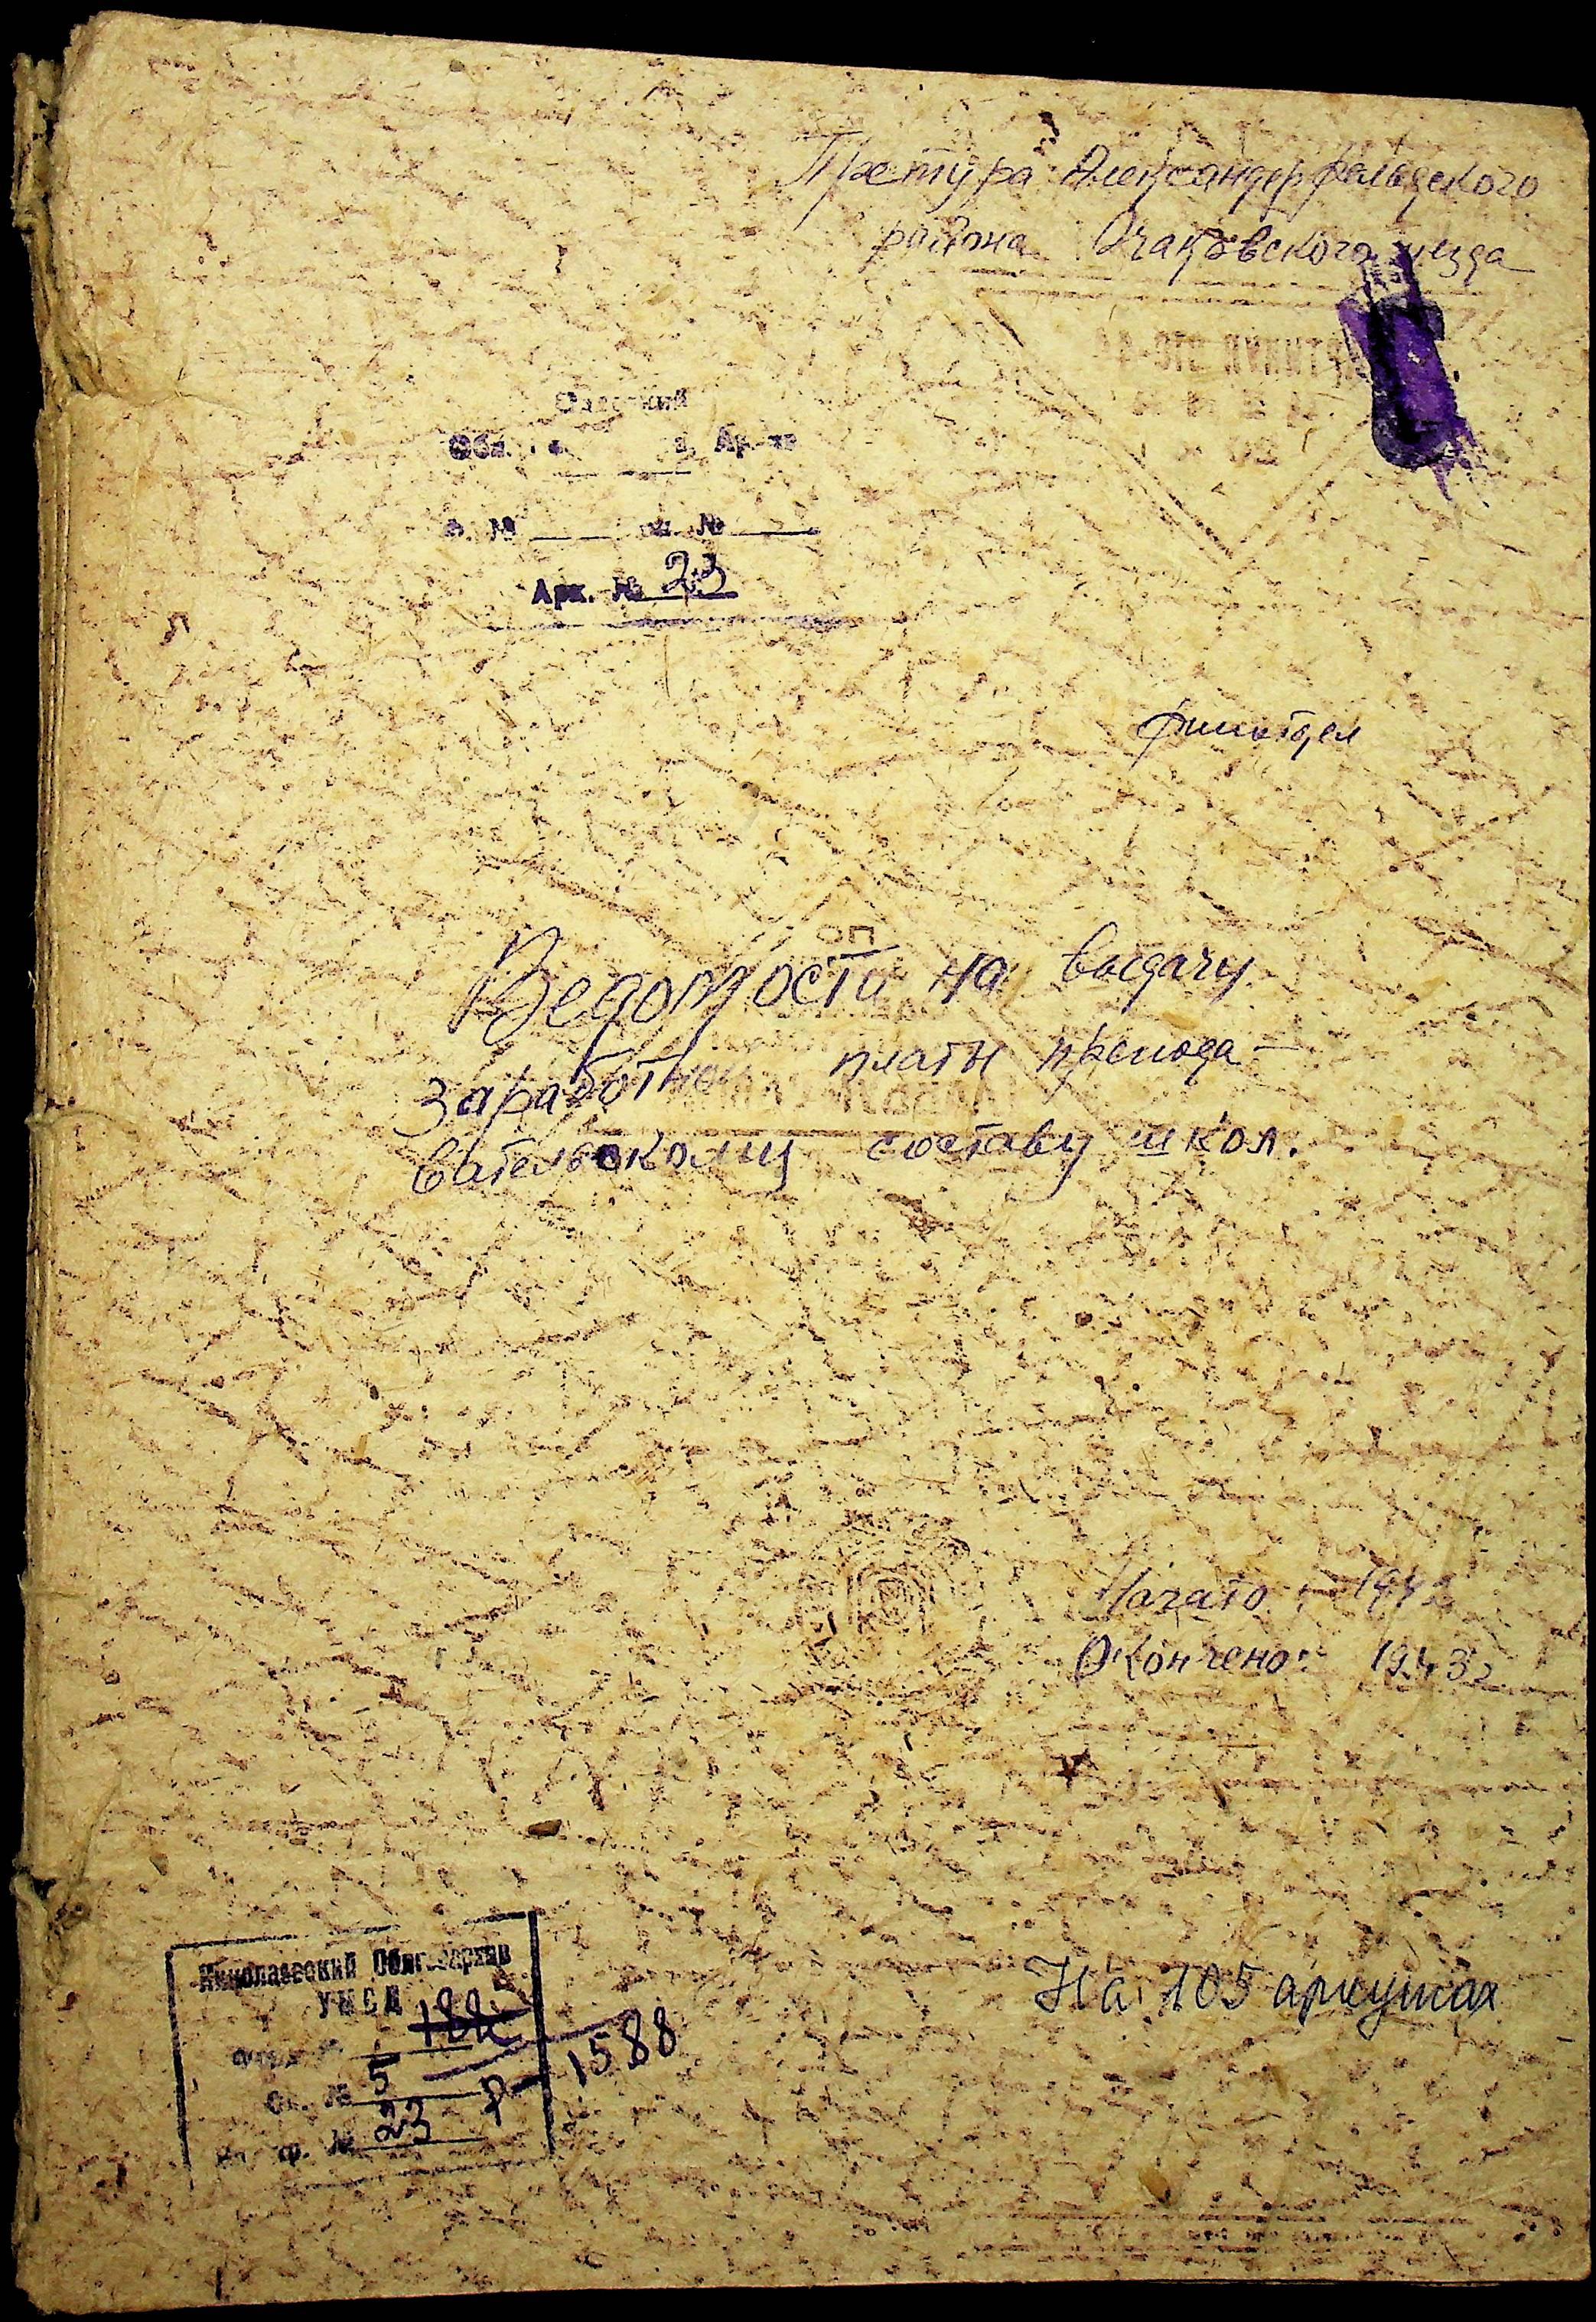 Претура Александерфельдского
района Очаковского уезда
Арх. № 23
финотдел
Ведомости на выдачу
заработной платы препода-
вательскому составу школ.
Начато: 1942
Окончено: 1943
На 105 аркушах
Николаевский Облгосархив
УМСД
1588
Оп. № 5
№ 23